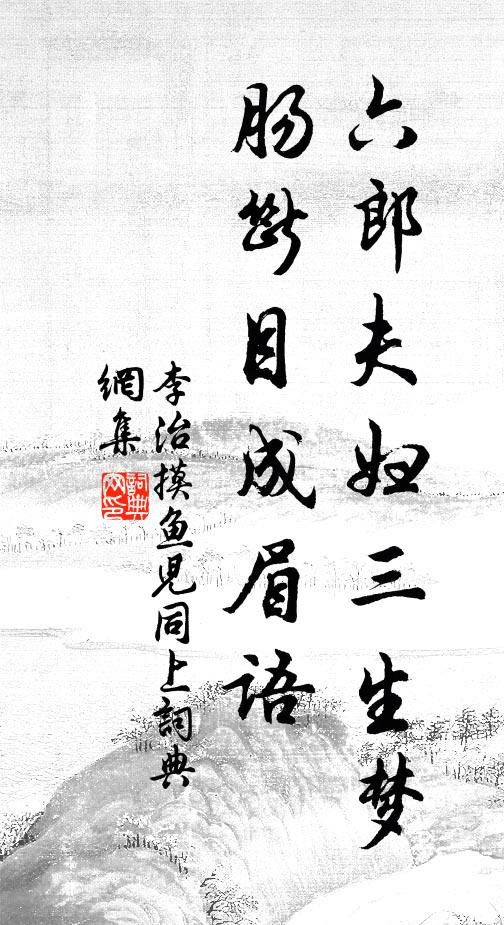 六郎夫妇三生梦
肠断目成眉语
李治摸鱼児同上詞典
網集
詞典
网印